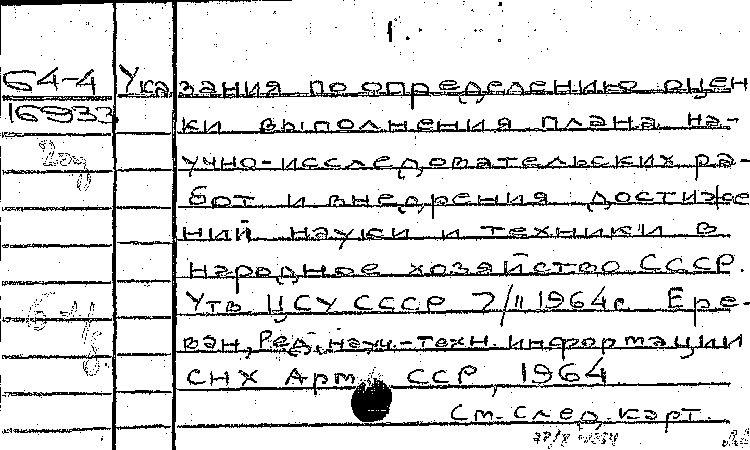 1.
64-4 Указания по определению оцен
16933 ки выполнения плана на-
учно-исследовательских ра-
бот и внедрения достиже
ний науки и техники в
народное хозяйство СССР.
Утв. ЦСУ СССР 7/II 1964г. Ере-
ван, Ред. науч.-техн. информации
СНХ Арм. ССР, 1964
См. след. карт.